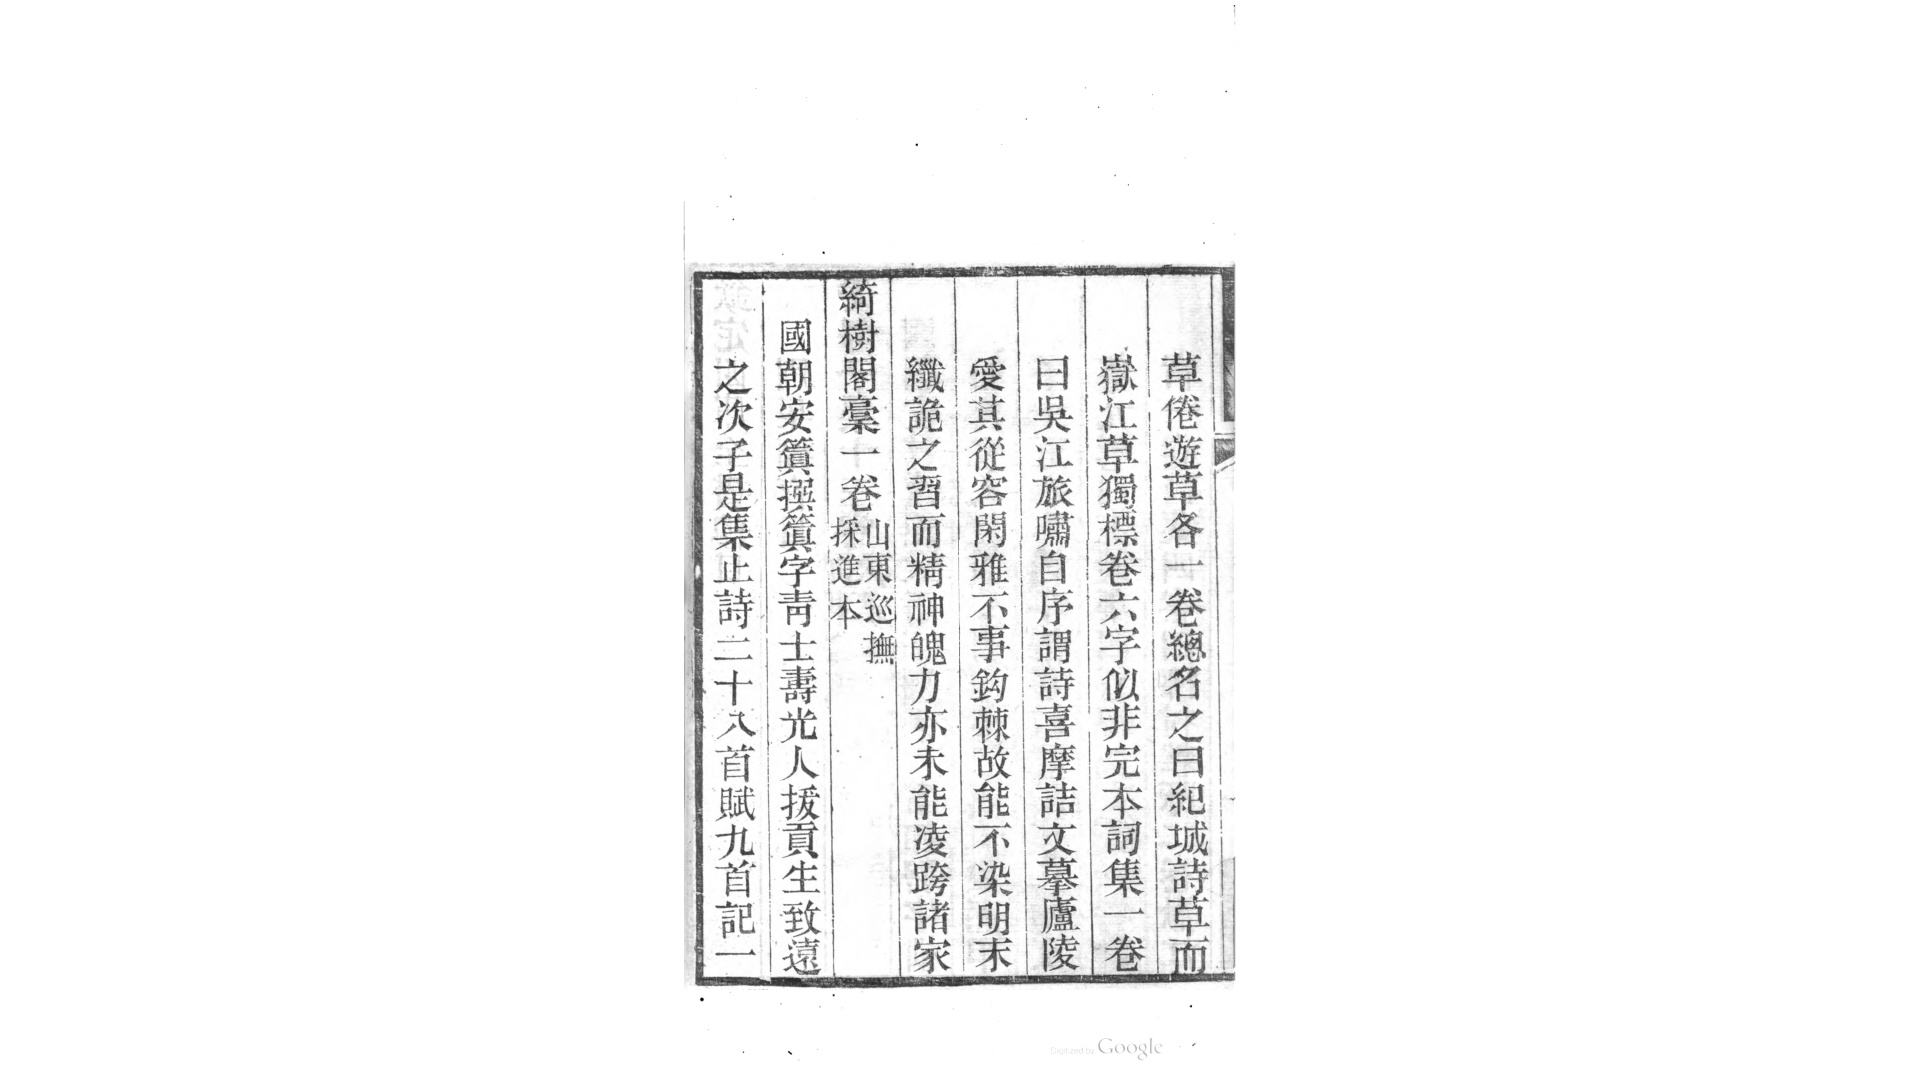 草倦遊草各一卷總名之曰紀城詩草而
嶽江草獨標卷六字似非完本詞集一卷
曰吳江旅嘯自序謂詩喜摩詰文摹廬陵
愛其從容閑雅不事鈎棘故能不染明末
纖詭之習而精神魄力亦未能凌跨諸家
綺樹閣稾一卷山東巡撫採進本
國朝安簧撰簧字靑士壽光人拔貢生致遠
之次子是集止詩二十八首賦九首記一
Digitized by Google